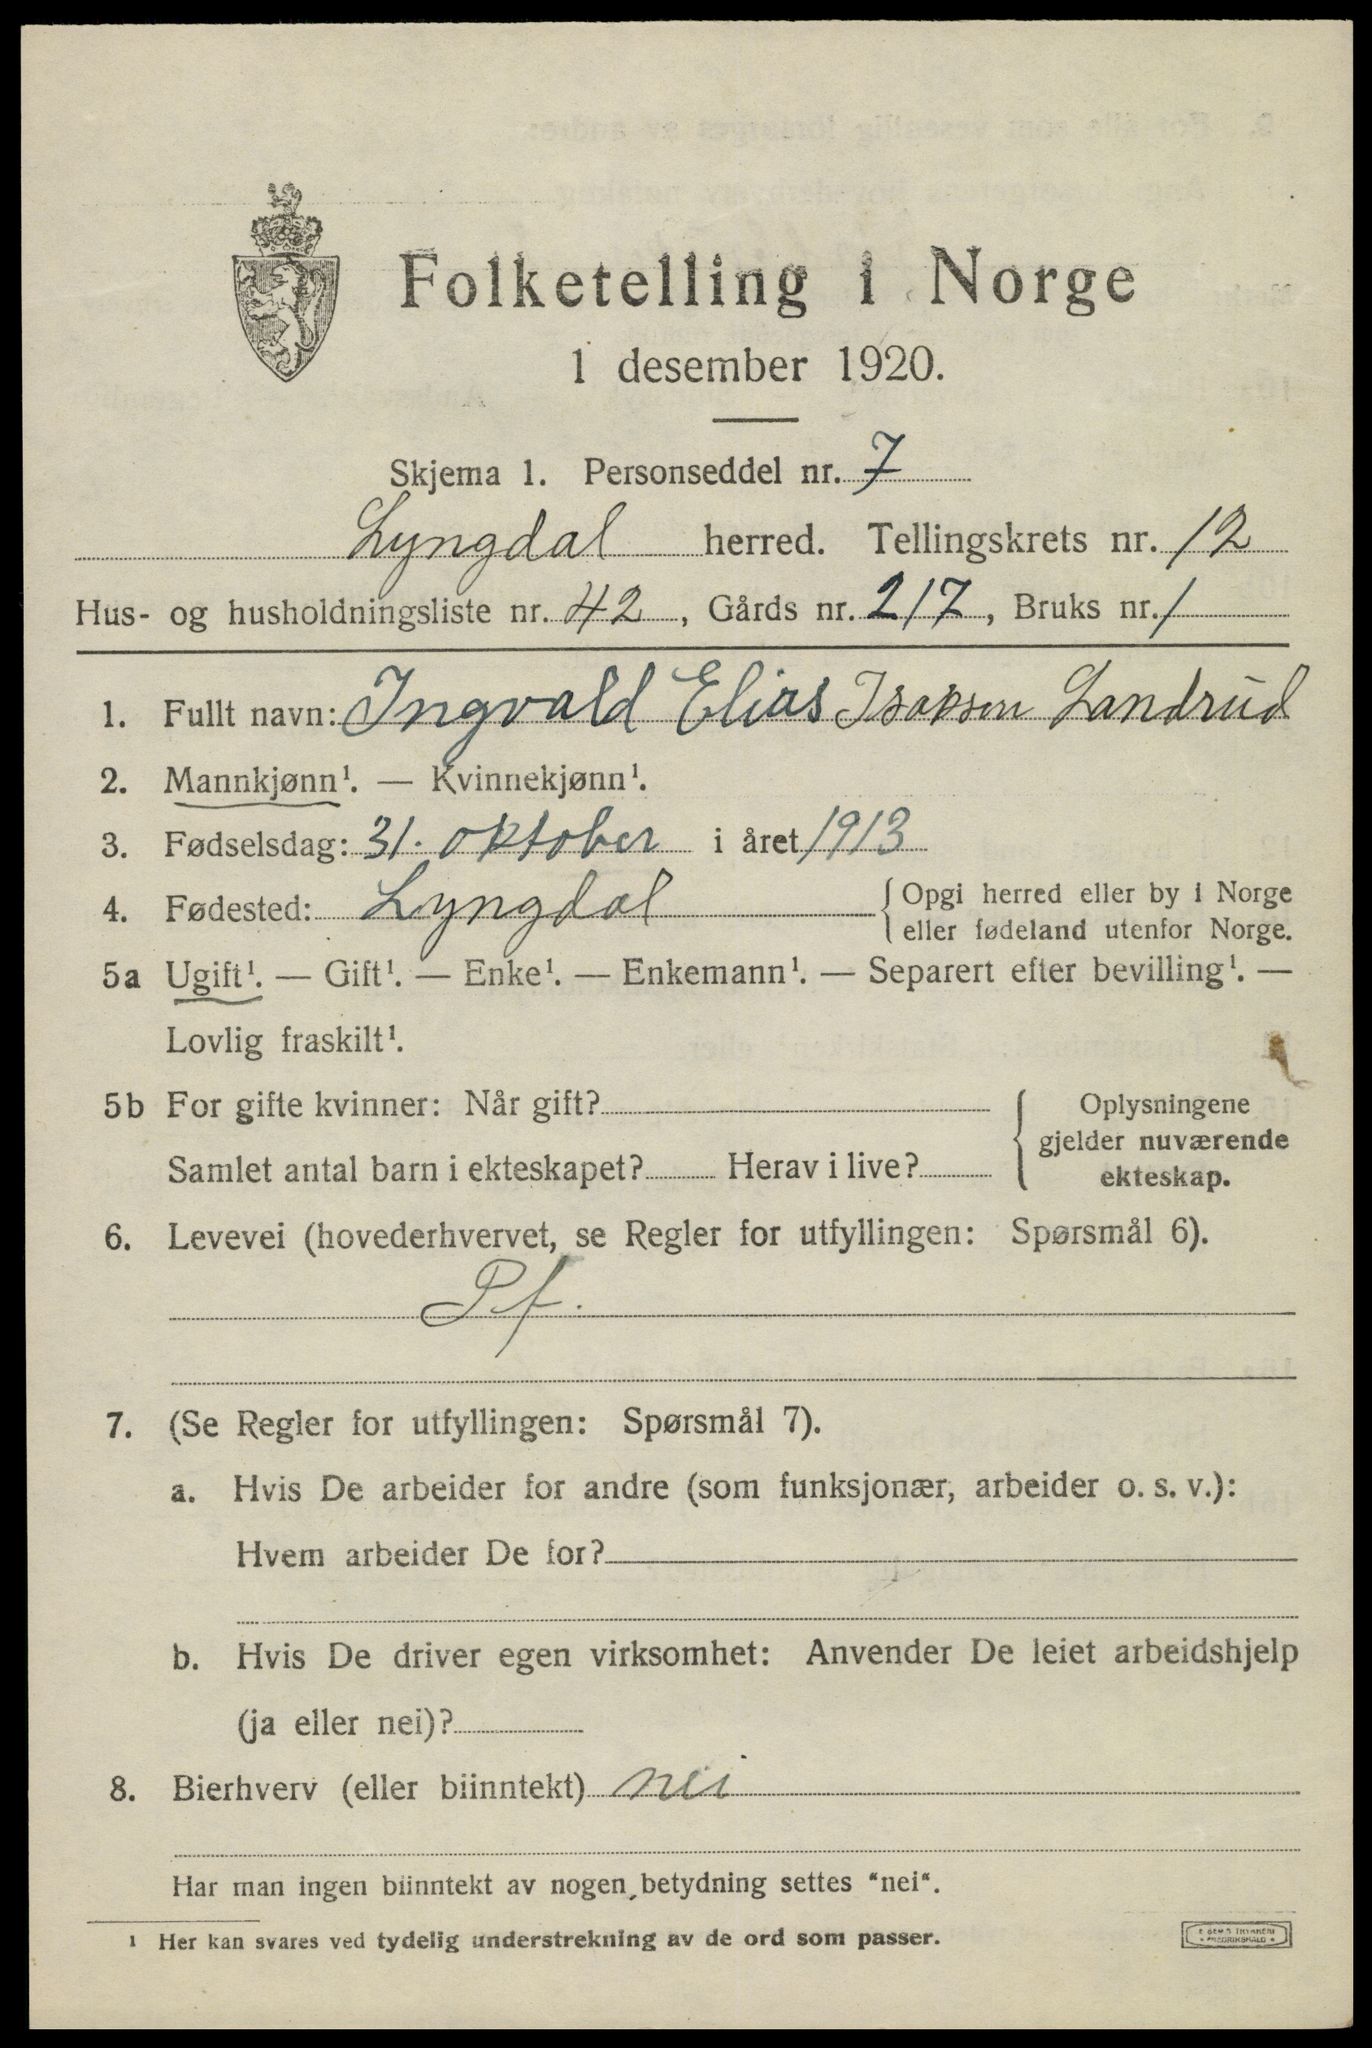 Folketelling i Norge
1 desember 1920.
Skjema 1. Personseddel nr. 7
Lyngdal herred. Tellingskrets nr. 12
Hus- og husholdningsliste nr. 42, Gårds nr. 217, Bruks nr. 1
1. Fullt navn: Ingvald Elias Isaksen Landrud
2. Mannkjønn¹. — Kvinnekjønn¹.
3. Fødselsdag: 31. oktober i året 1913
4. Fødested: Lyngdal { Opgi herred eller by i Norge
eller fødeland utenfor Norge.
5a Ugift¹. — Gift¹. — Enke¹. — Enkemann¹. — Separert efter bevilling¹. —
Lovlig fraskilt¹.
5b For gifte kvinner: Når gift? { Oplysningene
gjelder nuværende
Samlet antal barn i ekteskapet? Herav i live? ekteskap.
6. Levevei (hovederhvervet, se Regler for utfyllingen: Spørsmål 6).
Pf.
7. (Se Regler for utfyllingen: Spørsmål 7).
a. Hvis De arbeider for andre (som funksjonær, arbeider o. s. v.):
Hvem arbeider De for?
b. Hvis De driver egen virksomhet: Anvender De leiet arbeidshjelp
(ja eller nei)?
8. Bierhverv (eller biinntekt) nei
Har man ingen biinntekt av nogen betydning settes "nei".
¹ Her kan svares ved tydelig understrekning av de ord som passer.